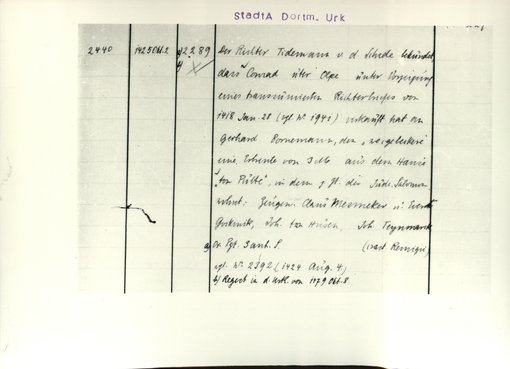 StadtA Dortm. Urk
2440 1425 Okt 2 a) 2.2.89 Der Richter Tidemann v. d. Schede bekundet,
b) dass Conrad üter Olpe unter Vorzeigung
eines transsumierten Richterbriefes von
1418 Jan 28 (vgl. Nr 1941) verkauft hat an
Gerhard Bornemann, den
eine Erbrente von 3 aus dem Hause
in dem z. Zt. der Jude Salomon
wohnt. Zeugen: Claus Mesmeker u. Everd
Joh. ten Husen, Joh. Teynmarck
a) Or. Pgt. 3 anh. S. (
vgl. Nr 2392 (1424 Aug. 4)
b) Regest in d. Urk. von 1479 Okt. 8